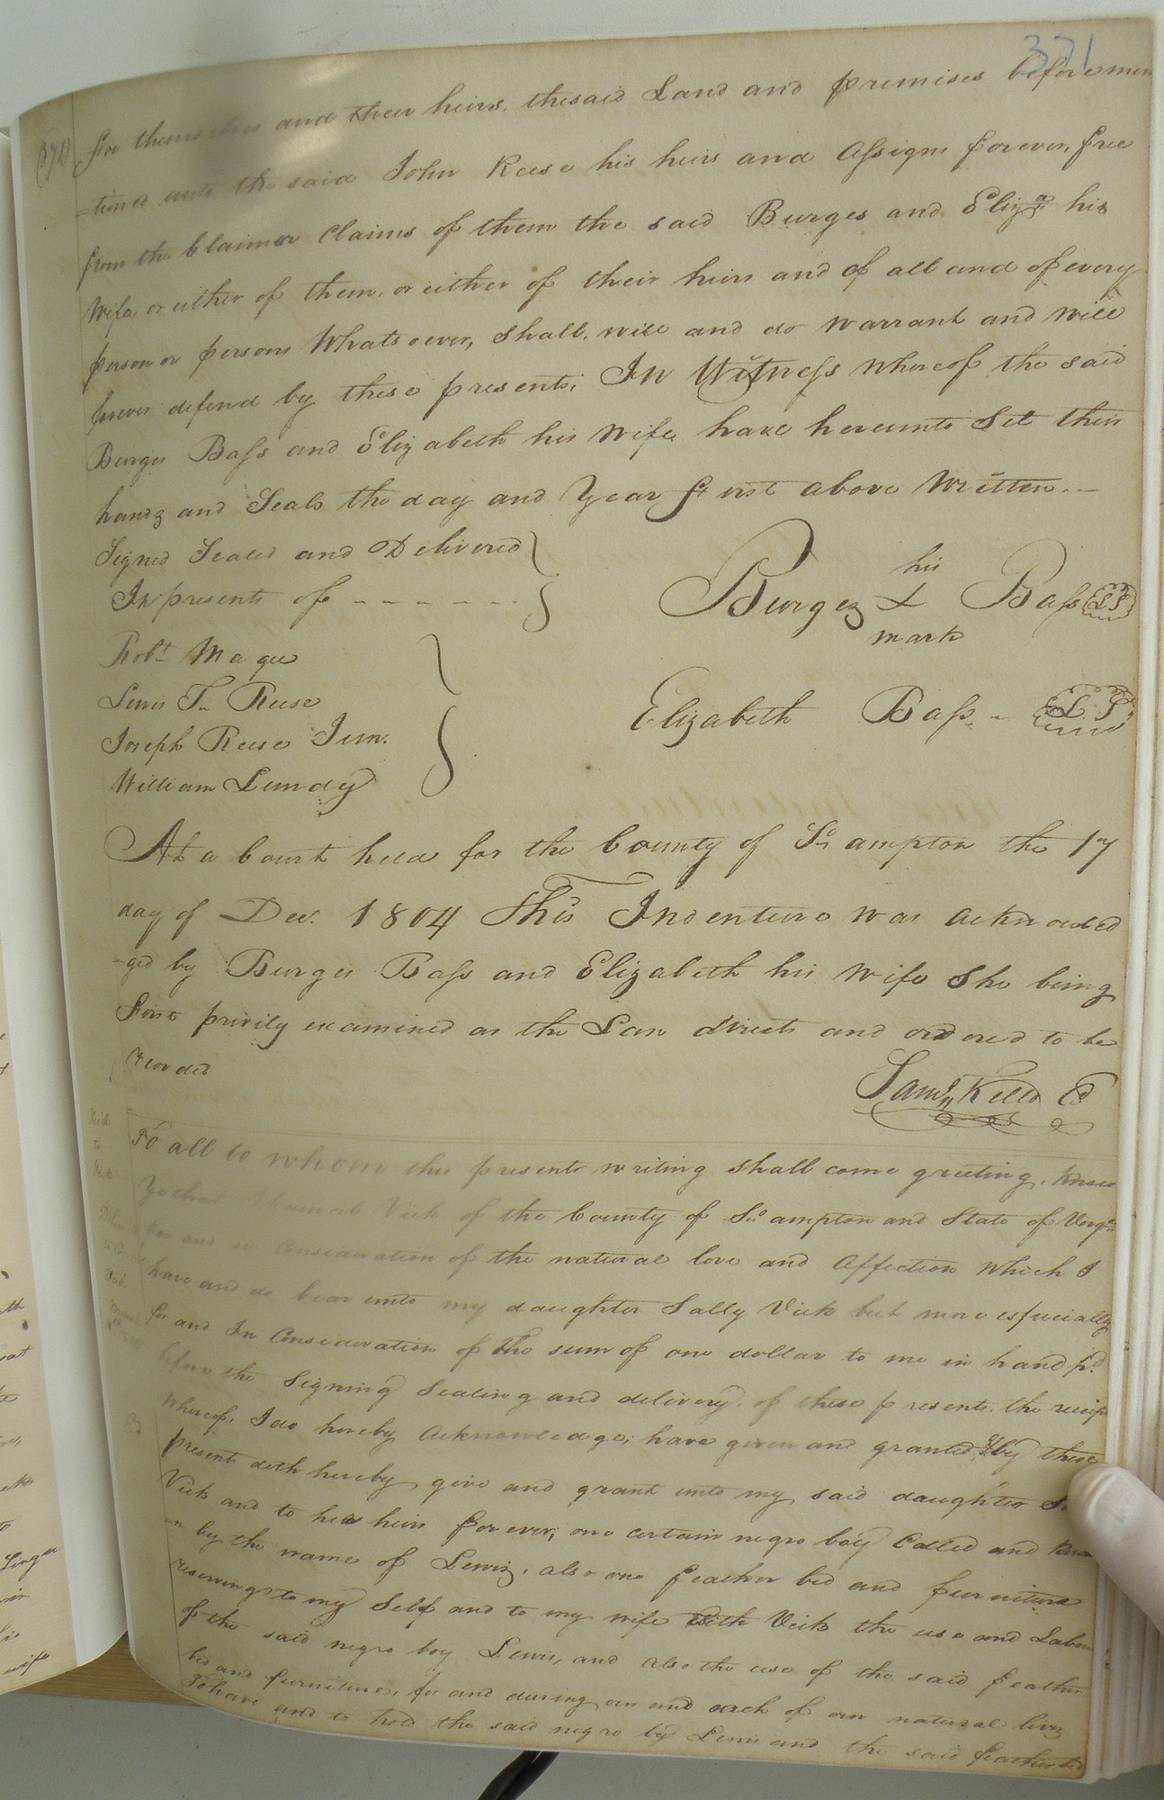 371
for themselves and their heirs, the said Land and premises beforemen
-tioned unto the said John Reese his heirs and Assigns forever, free
from the Claim or Claims of them the said Burges and Eliza. his
Wife or either of them, or either of their heirs and of all and of every
person or persons Whatsoever, Shall, will and do warrant and will
forever defend by these presents; In Witness Whereof the said
Burges Bass and Elizabeth his Wife have hereunto Set their
hands and Seals the day and Year first above Written--
Signed Sealed and Delivered
In presents of -------
Burges his + mark Bass LS
Robt. Magee
Lewis Th. Reese
Elizabeth Bass - L.S.
Joseph Reese Jun.
William Lundy
At a Court held for the County of So.ampton the 17
day of Dec. 1804 This Indenture was acknowled
-ged by Burges Bass and Elizabeth his Wife She being
first privily examined as the Law directs and ordered to be
recorded
Saml. Kello C
To all to whom this presents writing shall come greeting, Know
Ye that Vick of the County of So.ampton and State of Virga.
for and in Consideration of the natural love and Affection Which I
have and do bear unto my daughter Sally Vick but more espicially
for and In Consideration of the sum of one dollar to me in hand pd.
before the Signing Sealing and delivery of these presents, the receipt
Whereof, I do hereby Acknowledge; have given and granted & by these
present doth hereby give and grant unto my said daughter
Vick and to her heirs forever, one certain negro boy Called and know
-n by the name of Lewis, also one feather bed and furniture
reserving to my Self and to my wife Vick the use and Labour
of the said negro boy Lewis, and also the use of the said feather
bed and furniture, for and during our and each of our natural lives
To have and to hold the said negro boy Lewis and the said feather bed